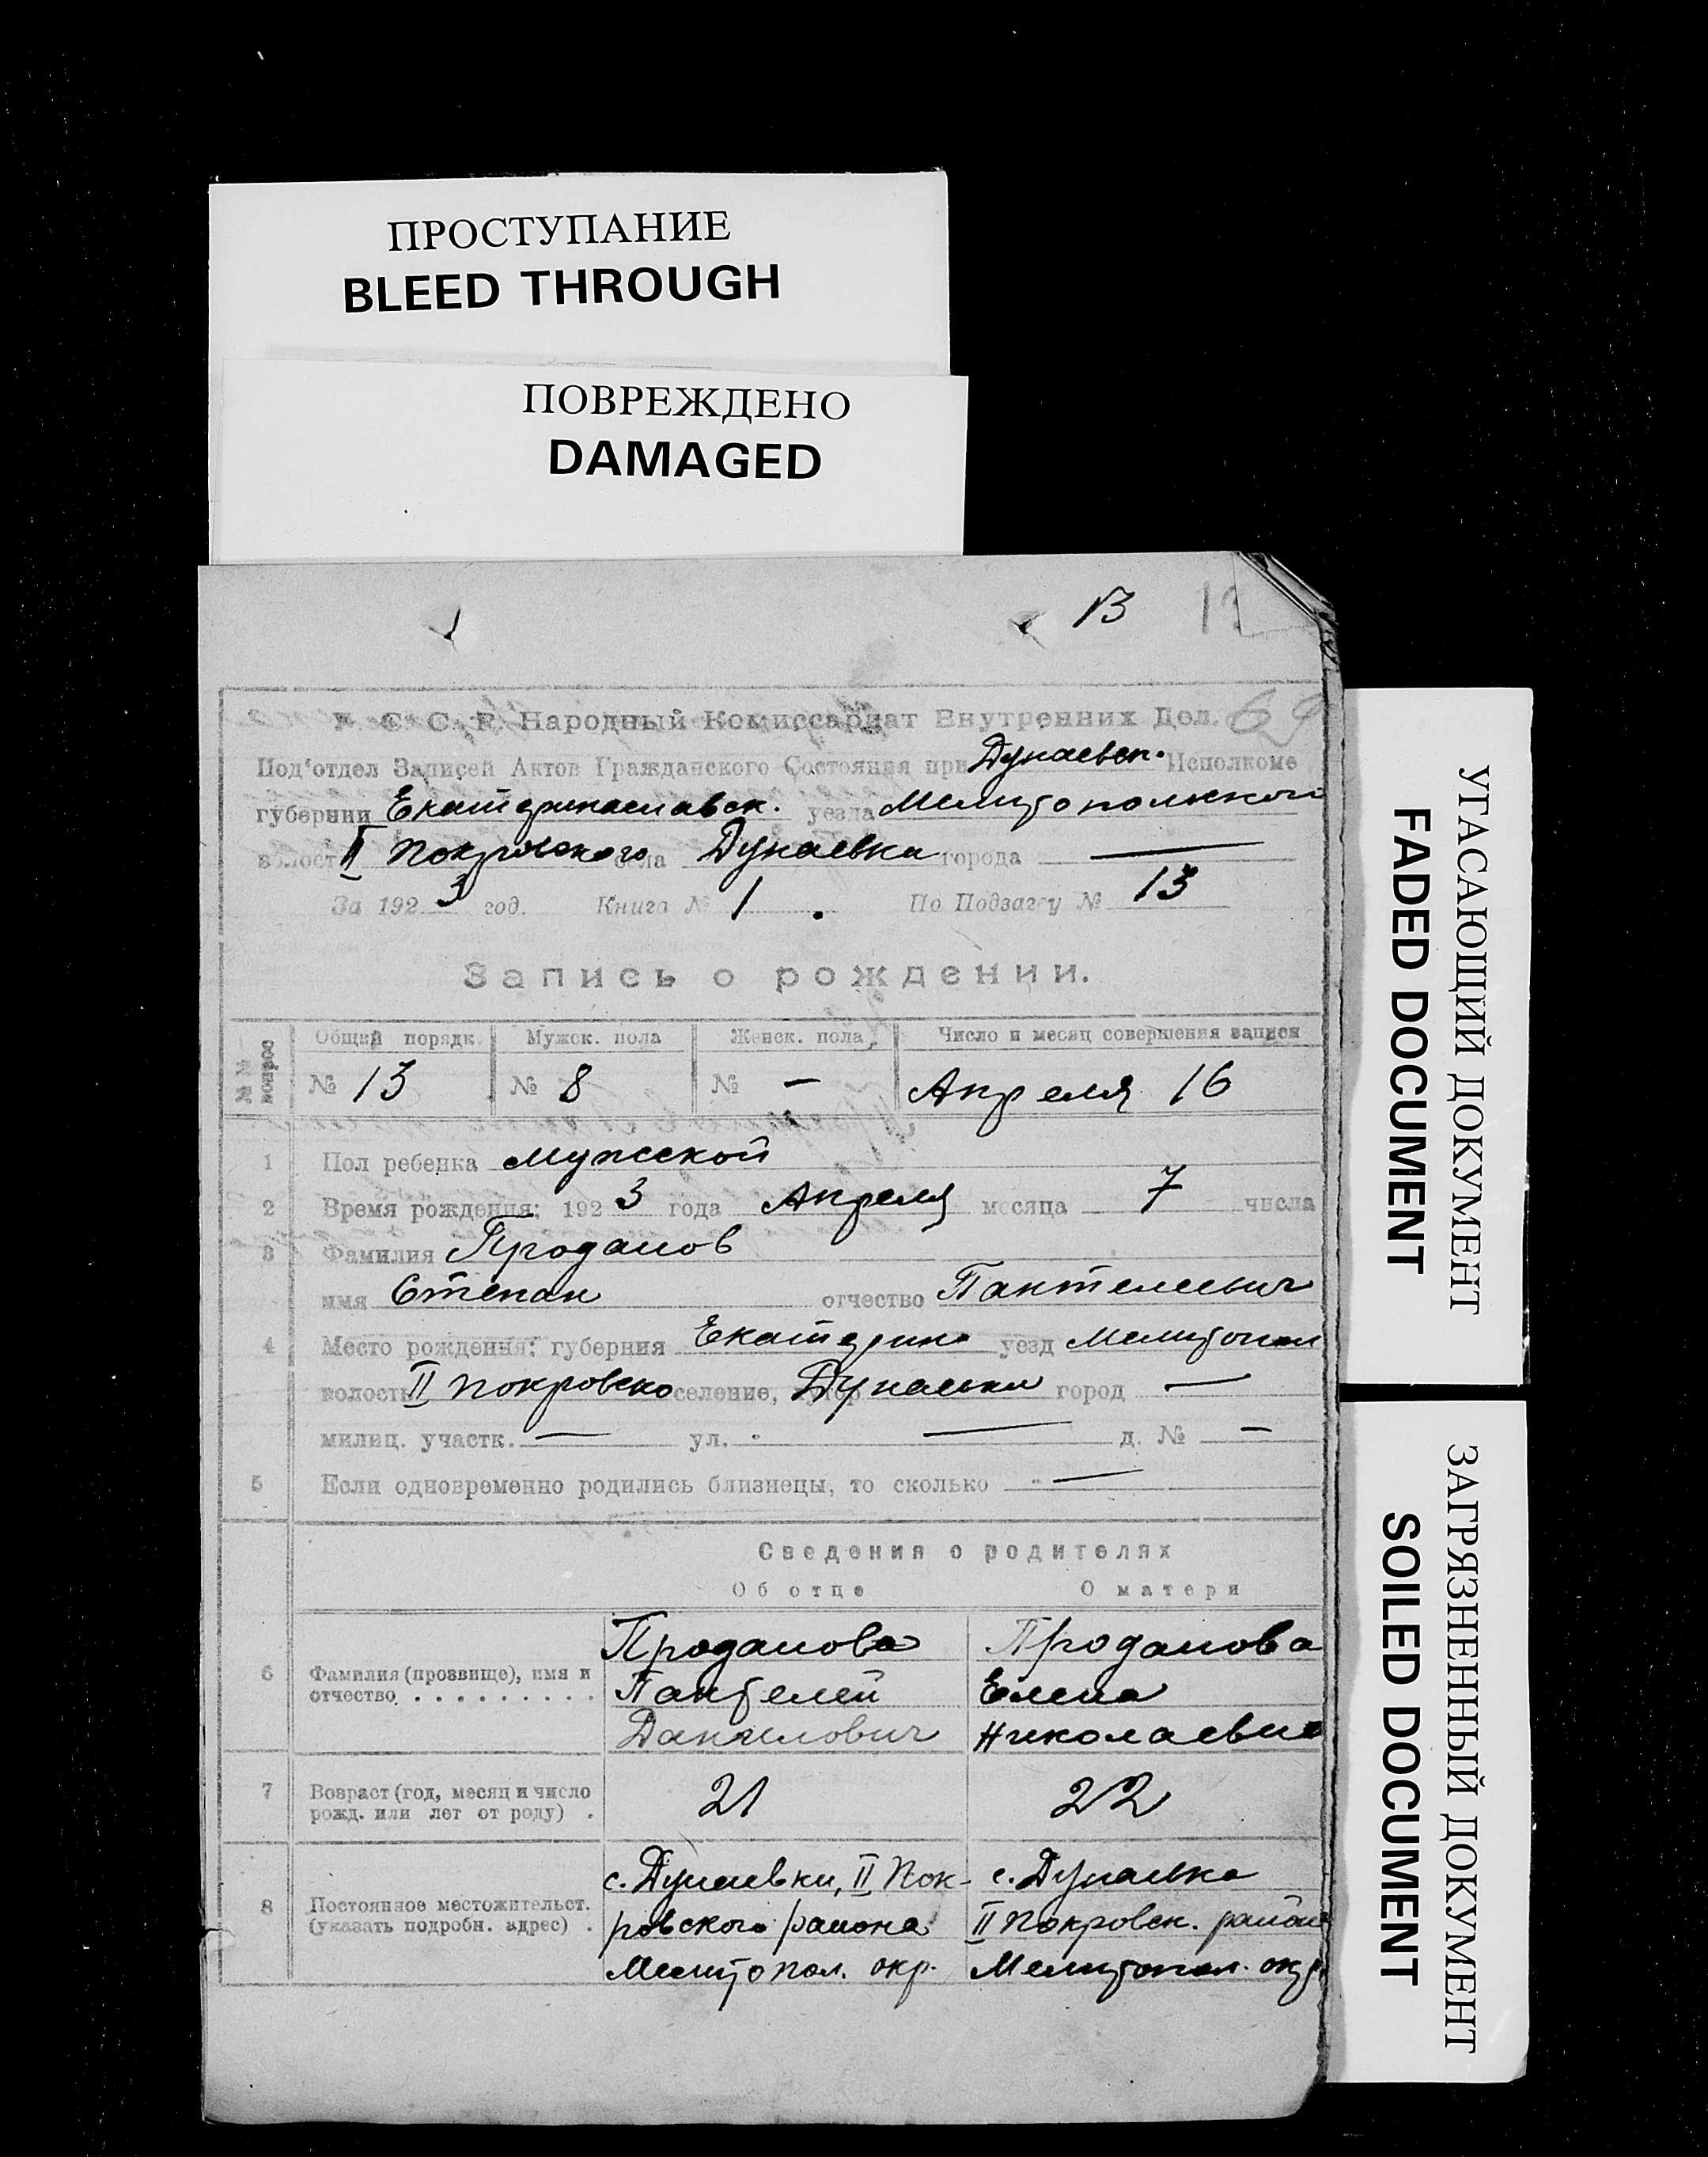 ПРОСТУПАНИЕ
BLEED THROUGH
ПОВРЕЖДЕНО
DAMAGED
13
У. С. С. Р. Народный Комиссариат Внутренних Дел. 69
Под'отдел Записей Актов Гражданского Состояния при Дунаевск. Исполкоме
губернии Екатеринославск. уезда Мелитопольского
волост II Покровского села Дунаевки города —
За 1923 год. Книга № 1. По Подзагсу № 13
Запись о рождении.
№№ вопрос
Общий порядк. Мужск. пола Женск. пола Число и месяц совершения записи
№ 13 № 8 № — Апреля 16
1 Пол ребенка мужской
2 Время рождения: 1923 года Апреля месяца 7 числа
3 Фамилия Проданов
имя Степан отчество Пантелеевич
4 Место рождения: губерния Екатерин уезд Мелитопол
волость II Покровско селение, хутор Дунаевки город —
милиц. участк. — ул. — д. № —
5 Если одновременно родились близнецы, то сколько —
Сведения о родителях
Об отце О матери
6 Фамилия (прозвище), имя и отчество
Проданова Проданова
Пантелей Елена
Данилович Николаевна
7 Возраст (год, месяц и число рожд. или лет от роду) .
21 22
8 Постоянное местожительст. (указать подробн. адрес) .
с. Дунаевки, II Пок- с. Дунаевка
ровского района II Покровск. район
Мелитопол. окр. Мелитопол. окр
УГАСАЮЩИЙ ДОКУМЕНТ
FADED DOCUMENT
ЗАГРЯЗНЕННЫЙ ДОКУМЕНТ
SOILED DOCUMENT